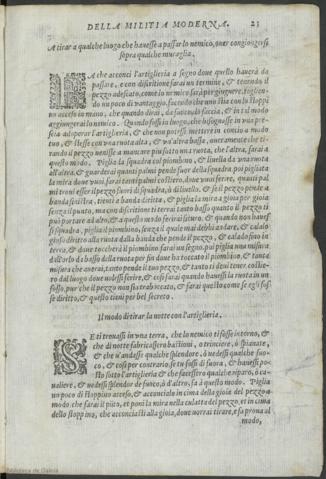 DELLA MILITIA MODERNA. 23
A tirar a qualche luogo che hauesse a passar lo nemico, ouer congiongersi
sopra qualche muraglia.
FA che acconci l'artiglieria a segno doue quello hauerà da
passare, e con discritione farai un termine, & tenendo il
pezzo adescato, come lo nemico sarà per giungere, toglien-
do un poco di vantaggio, facendo che uno stia con lo stoppi
no acceso in mano, che quando dirai, da fuoco, lo faccia, & in tal modo
aggiungerai lo nemico. Quando fosse in luogo, che bisognasse in vna pre-
scia adoperar l'artiglieria, & che non potessi mettere in concio a modo
tuo, & stesse con vna ruota alta, & vn'altra bassa, veramente che ti-
rando il pezzo venisse a mancare piu sul'una ruota, che l'altra, farai a
questo modo. Piglia la squadra col piombino, & liuella da vna ruota
all'altra, & guarderai quanti palmi pende fuor della squadra, poi pigliata
la mira doue vuoi, farai tanti palmi costiero, doue vuoi ferire, quanti pal
mi troui esser il pezzo fuori di squadra,
banda sinistra, tieni a banda diritta, & piglia la mira a gioia per gioia
senza il punto, ma con discritione ti terrai tanto basso quanto il pezzo ti
può portare ad alto, & a questo modo ferirai sicuro. & quando non hauessi
si squadra, piglia il piombino, senza il quale mai debbi andare, & calalo
giuso diritto alla ruota della banda che pende il pezzo, & calado fino in
terra, & doue toccherà il piombino farai un segno, poi piglia una misura
dall'orlo da basso della ruota per fin doue ha toccato il piombino, & tanta
misura che haurai, tanto pende il tuo pezzo, & tanto ti deui tener costie-
ro dal luogo doue volessi ferire, & cosi farai quando hauessi la ruota in un
fosso, pur che il pezzo non stia traboccato, & farai questo come se egli fos-
se diritto, & questo tieni per bel secreto.
Il modo di tirar la notte con l'artiglieria.
SE ti trouassi in vna terra, che lo nemico ti fosse intorno, &
che di notte fabricassero bastioni, o trinciere, ò spianate,
& che n'andasse qualche splendore, ò vedessi qualche fuo-
co, & cosi per contrario, se tu fossi di fuora, & hauessi po-
sto sotto l'artiglieria & che facessero qualche riparo, ò ca-
ualiere, & vedessi splendor de fuoco, ò d'altro, fa à questo modo. Piglia
un poco di stoppino acceso, & acconcialo in cima della gioia del pezzo a
modo che farai il pūto, et poni la mira nella culatta del pezzo, et in cima
dello stoppino, che acconciasti alla gioia, doue vorrai tirare, e fa proua al
modo,
Biblioteca de Galicia